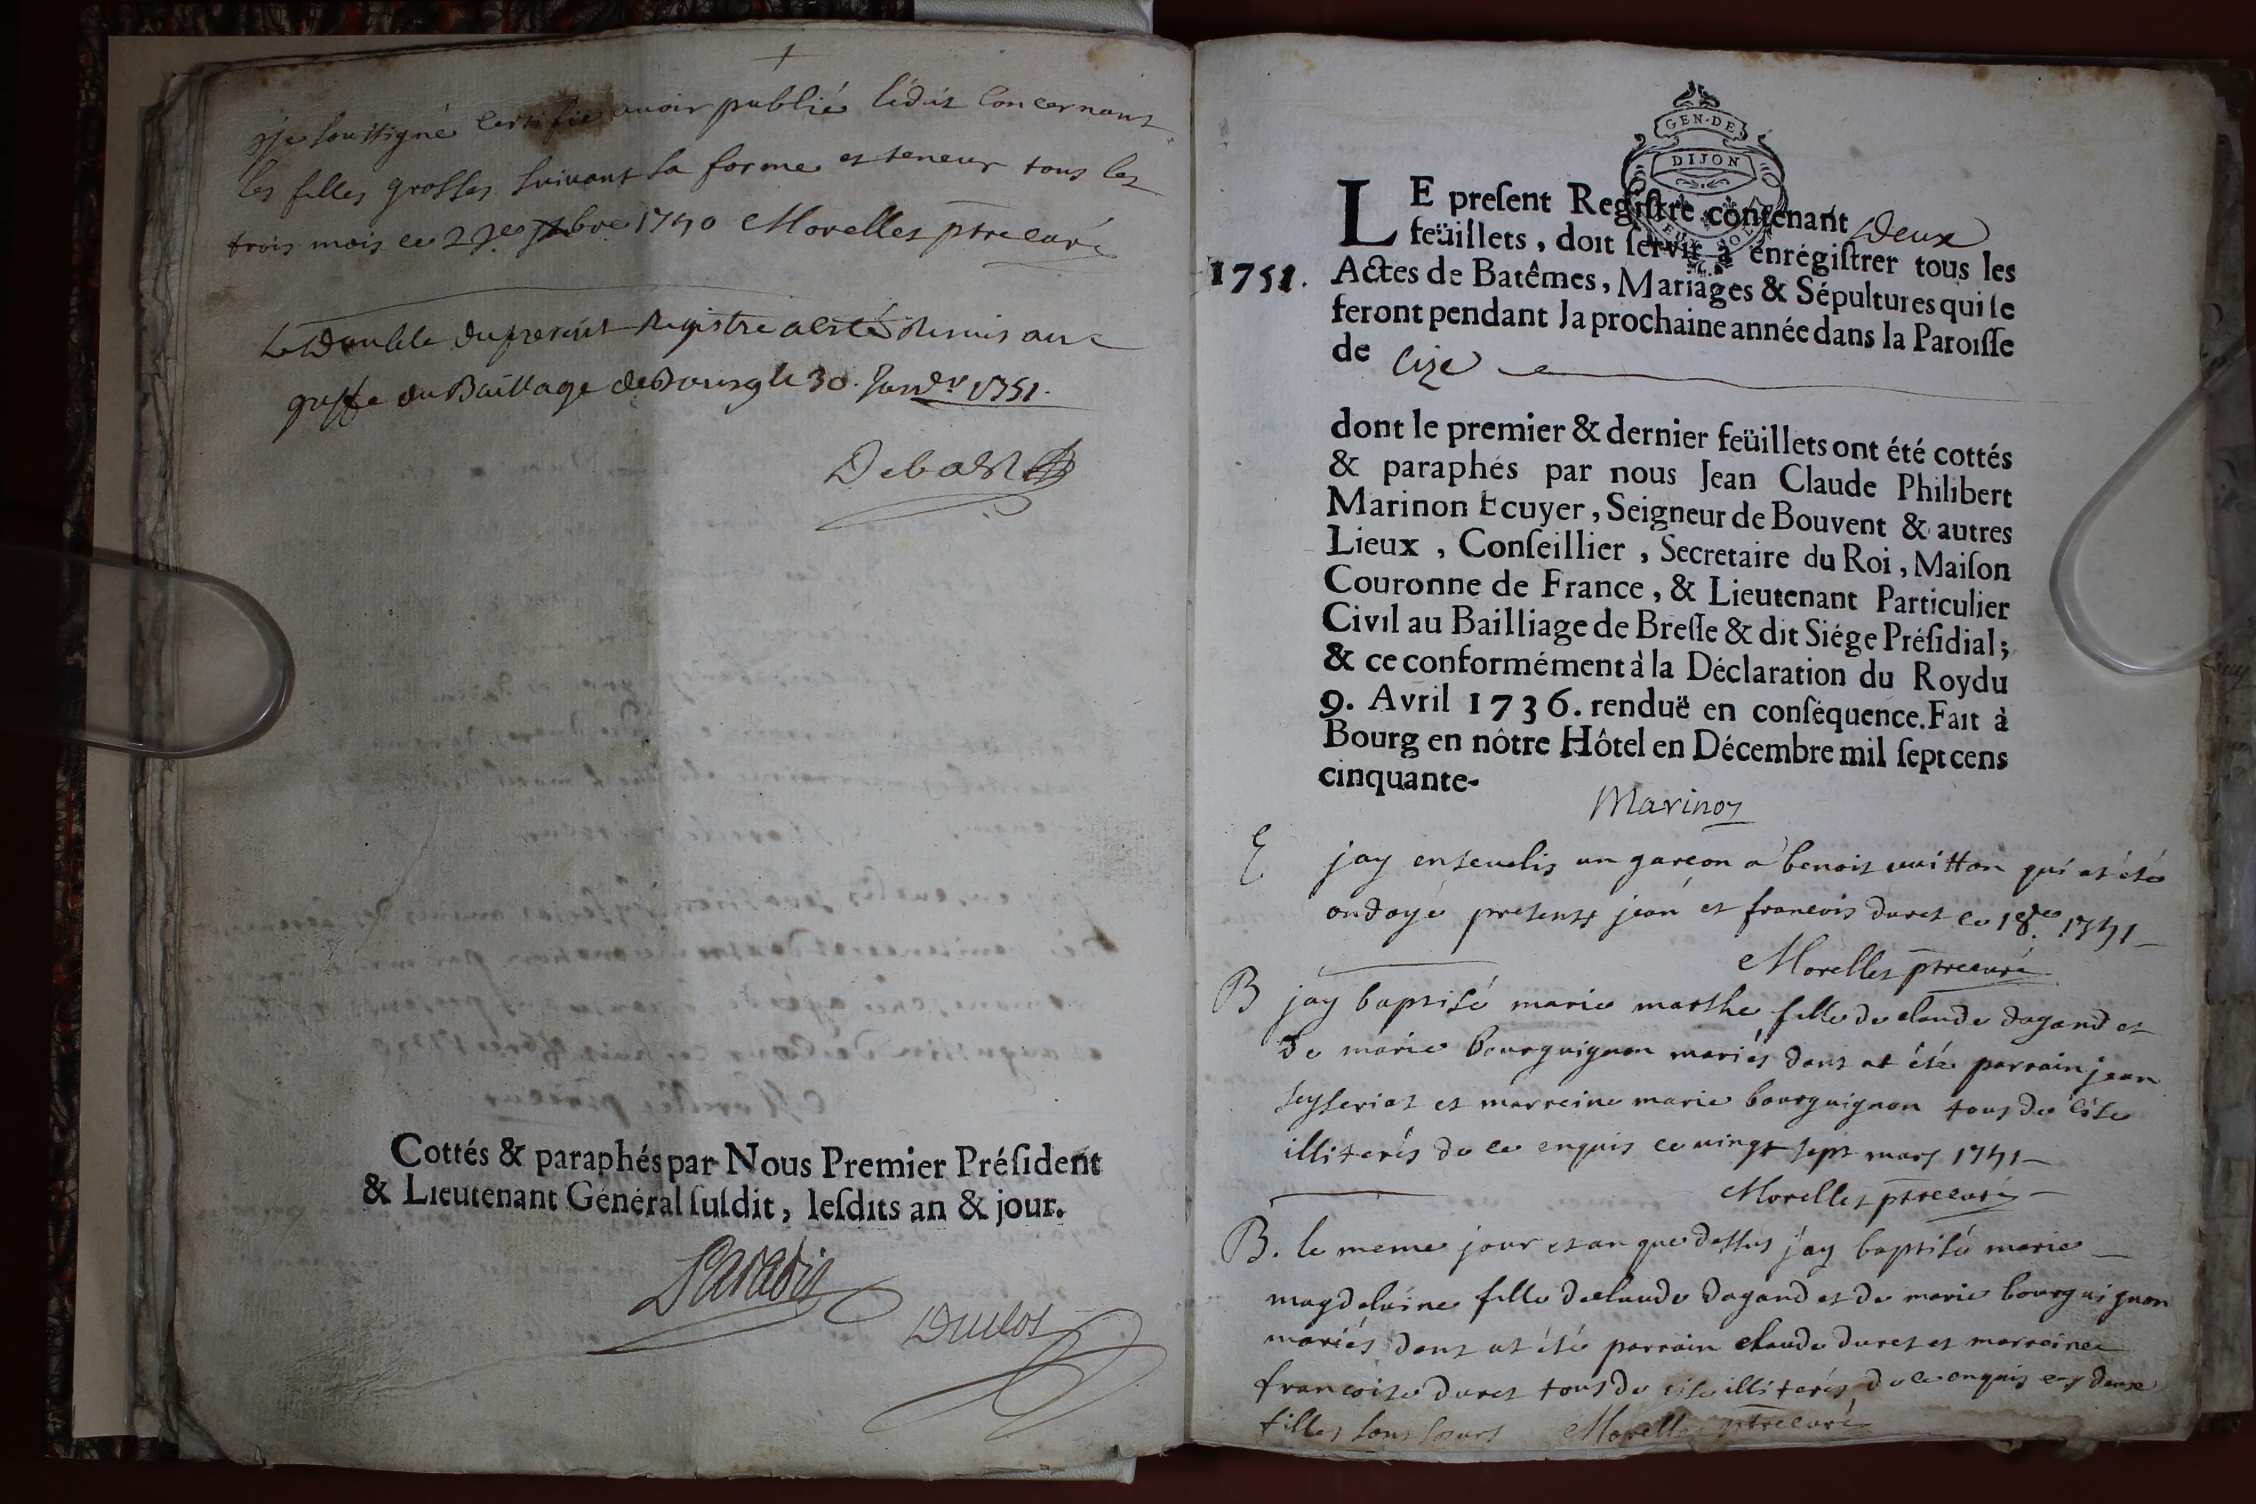 Je souttigné certifie avoir publié l'edit concernant
les filles grosses suivant sa forme et teneur tous les
trois mois ce 1750 Morellet ptre curé
Le Double du present Registre a esté remis au
greffe du Bailliage de Bourg le 30. Janvr 1751.
Debost
Cottés & paraphés par Nous Premier Préſident
& Lieutenant Général ſuſdit, leſdits an & jour.
Paradis
Duclos
GEN·DE
DIJON
LE preſent Regiſtre contenant Deux
feüillets, doit ſervir à enrégiſtrer tous les
1751. Actes de Batêmes, Mariages & Sépultures qui ſe
feront pendant la prochaine année dans la Paroiſſe
de Cize
dont le premier & dernier feüillets ont été cottés
& paraphés par nous Jean Claude Philibert
Marinon Ecuyer, Seigneur de Bouvent & autres
Lieux, Conſeillier, Secretaire du Roi, Maiſon
Couronne de France, & Lieutenant Particulier
Civil au Bailliage de Breſſe & dit Siége Préſidial;
& ce conformément à la Déclaration du Roy du
9. Avril 1736. renduë en conſéquence. Fait à
Bourg en nôtre Hôtel en Décembre mil ſept cens
cinquante-
Marinon
E jay ensevelis un garçon a benoit vuitton qui at été
ondoyé presents jean et francois duret ce 1751
Morellet ptre curé
B jay baptisé marie marthe fille de claude dagand et
de marie bourguignon mariés dont at été parrain jean
seysseriat et marreine marie bourguignon tous de cise
illiterés de ce enquis ce vingt sept mars 1751
Morellet ptre curé
B. le meme jour et an que dessus j'ay baptisé marie
magdelaine fille de claude dagand et de marie bourguignon
mariés dont at été parrain claude duret et marreine
francoise duret tous de cise illiterés de ce enquis ces deux
filles sont sœurs Morellet ptre curé